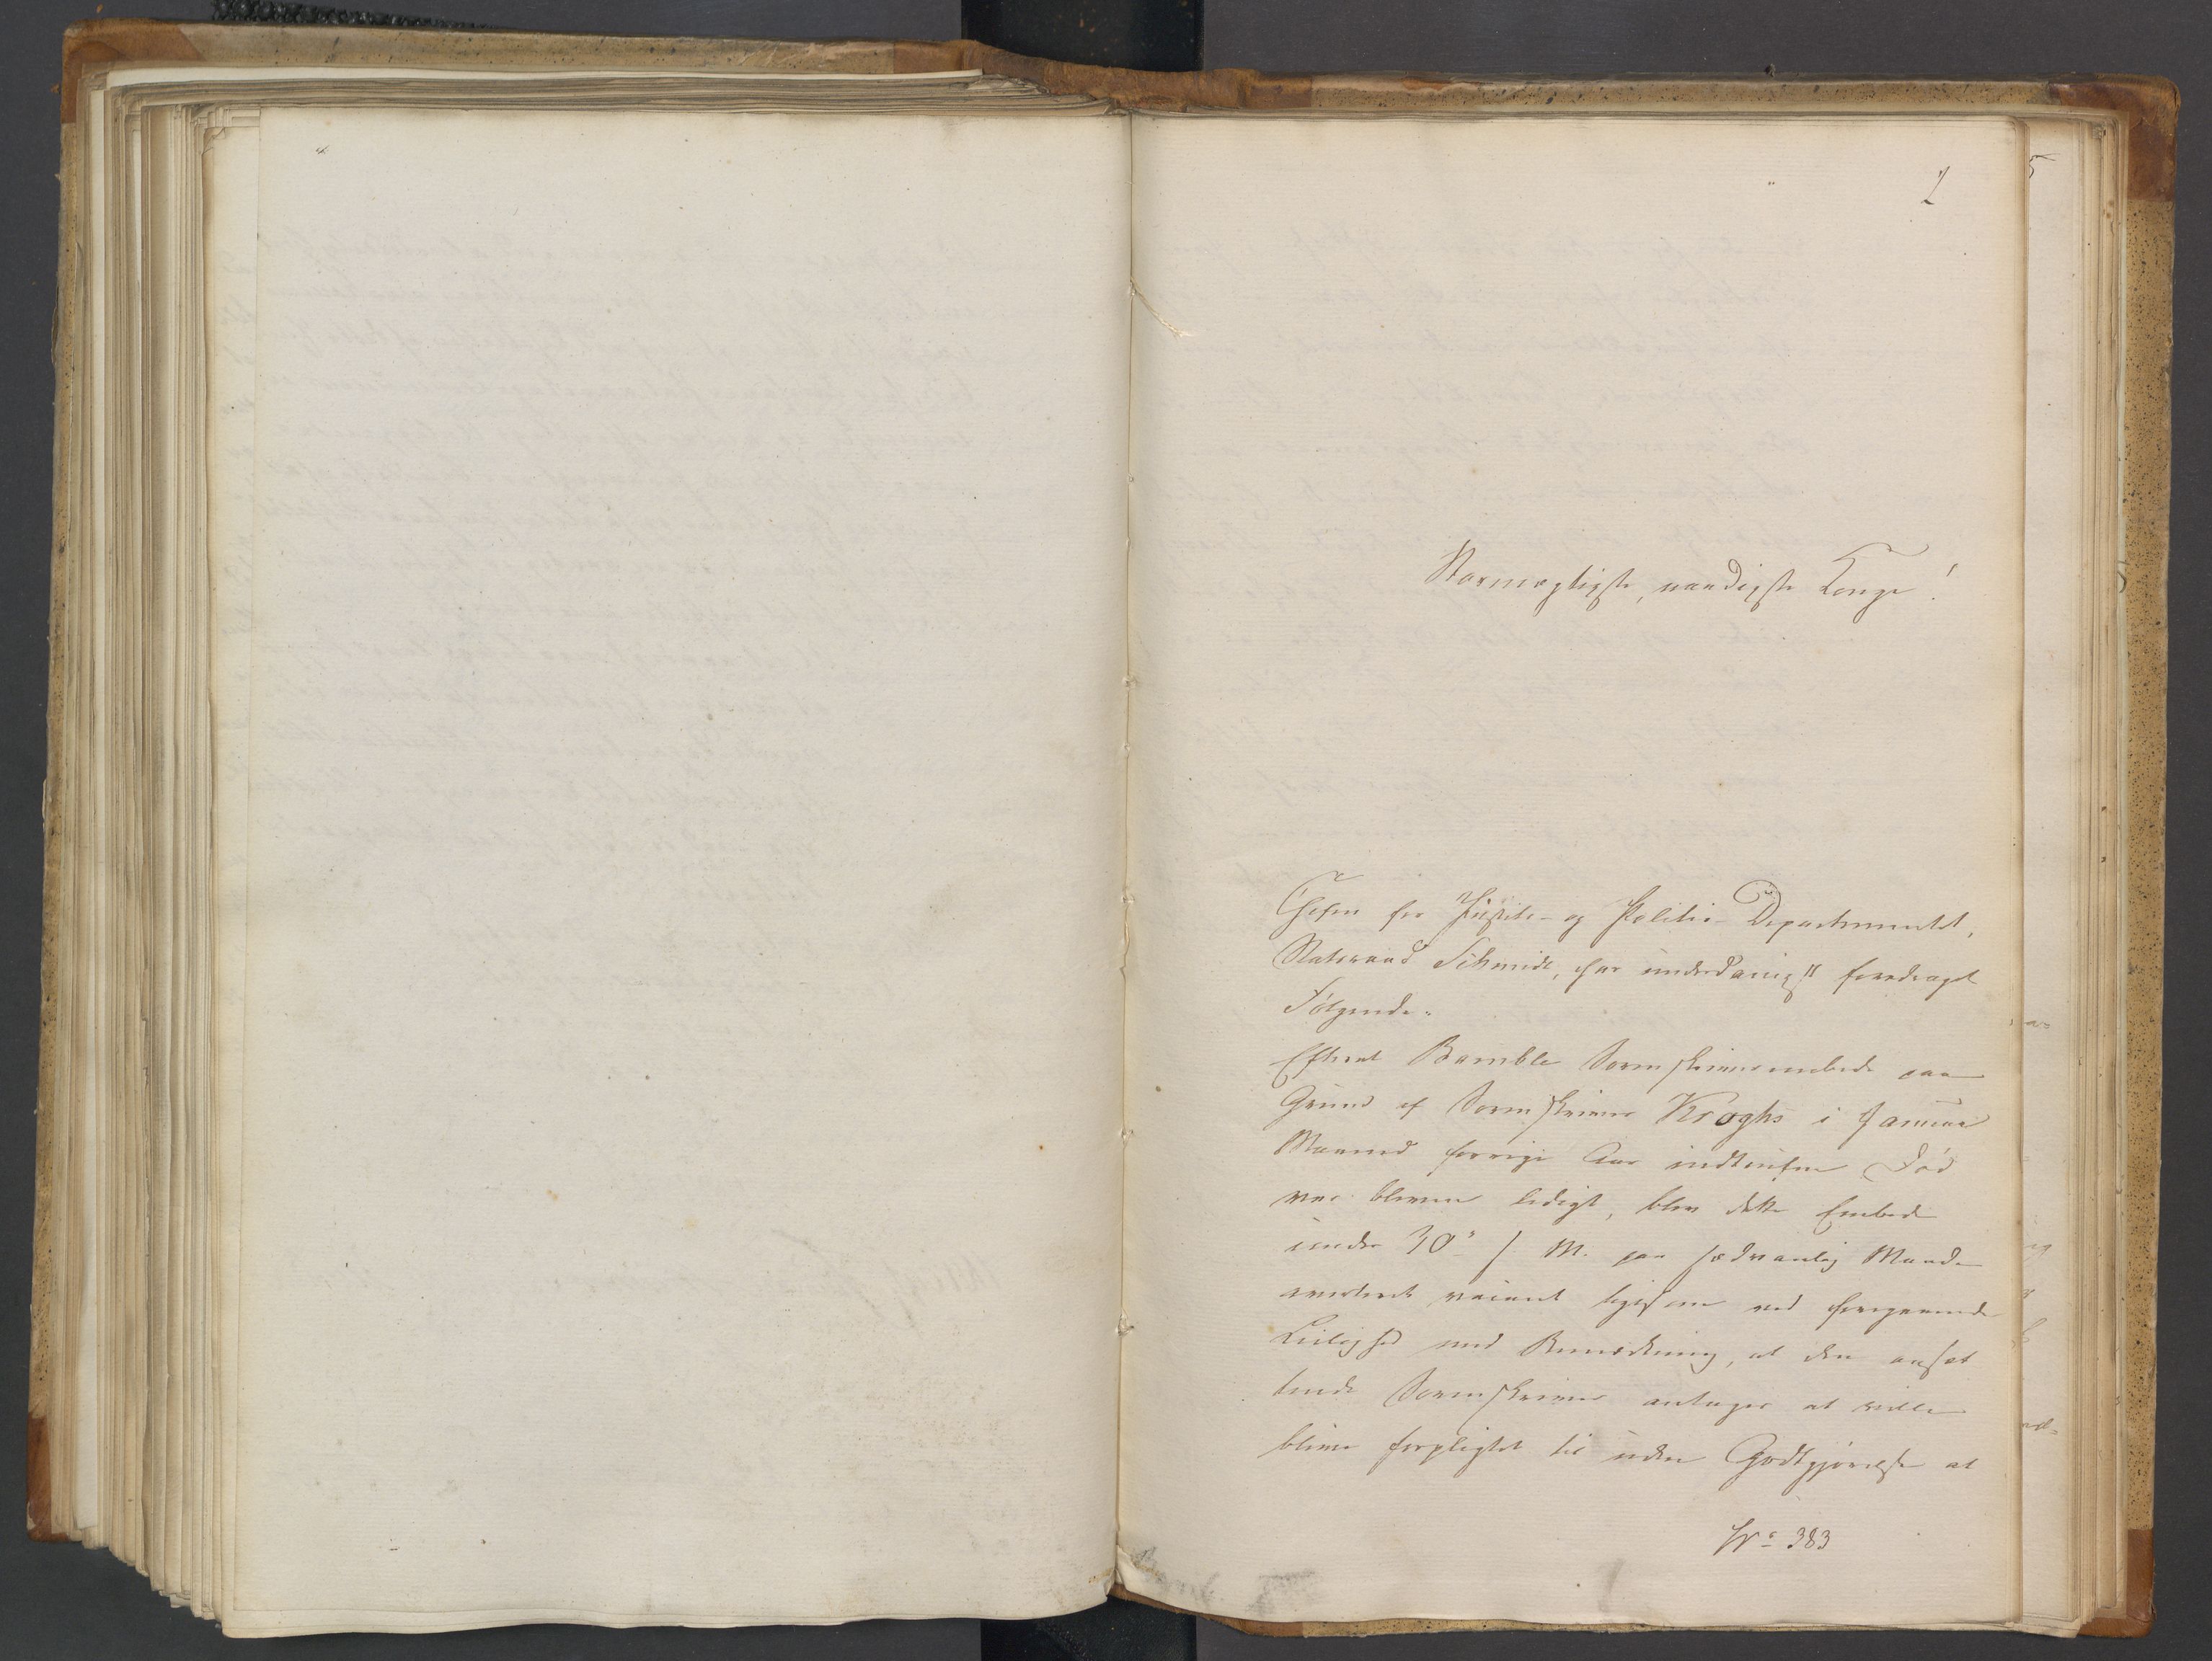 1
Stormægtigste, naadigste Konge!
Chefen for Justits- og Politie-Departementet,
Statsraad Schmidt, har underdanigst foredraget
Følgende:
Efterat Bamble Sorenskriverembede paa
Grund af Sorenskriver Kroghs i Januar
Maaned forrige Aar indtrufne Død
var bleven ledigt, blev dette Embede
under 30te s. M. paa sædvanlig Maade
averteret vacant ligesom ved foregaaende
Leilighed med Bemærkning, at den ansæt
tende Sorenskriver antages at ville
blive forpligtet til uden Godtgjørelse at
No 383
5